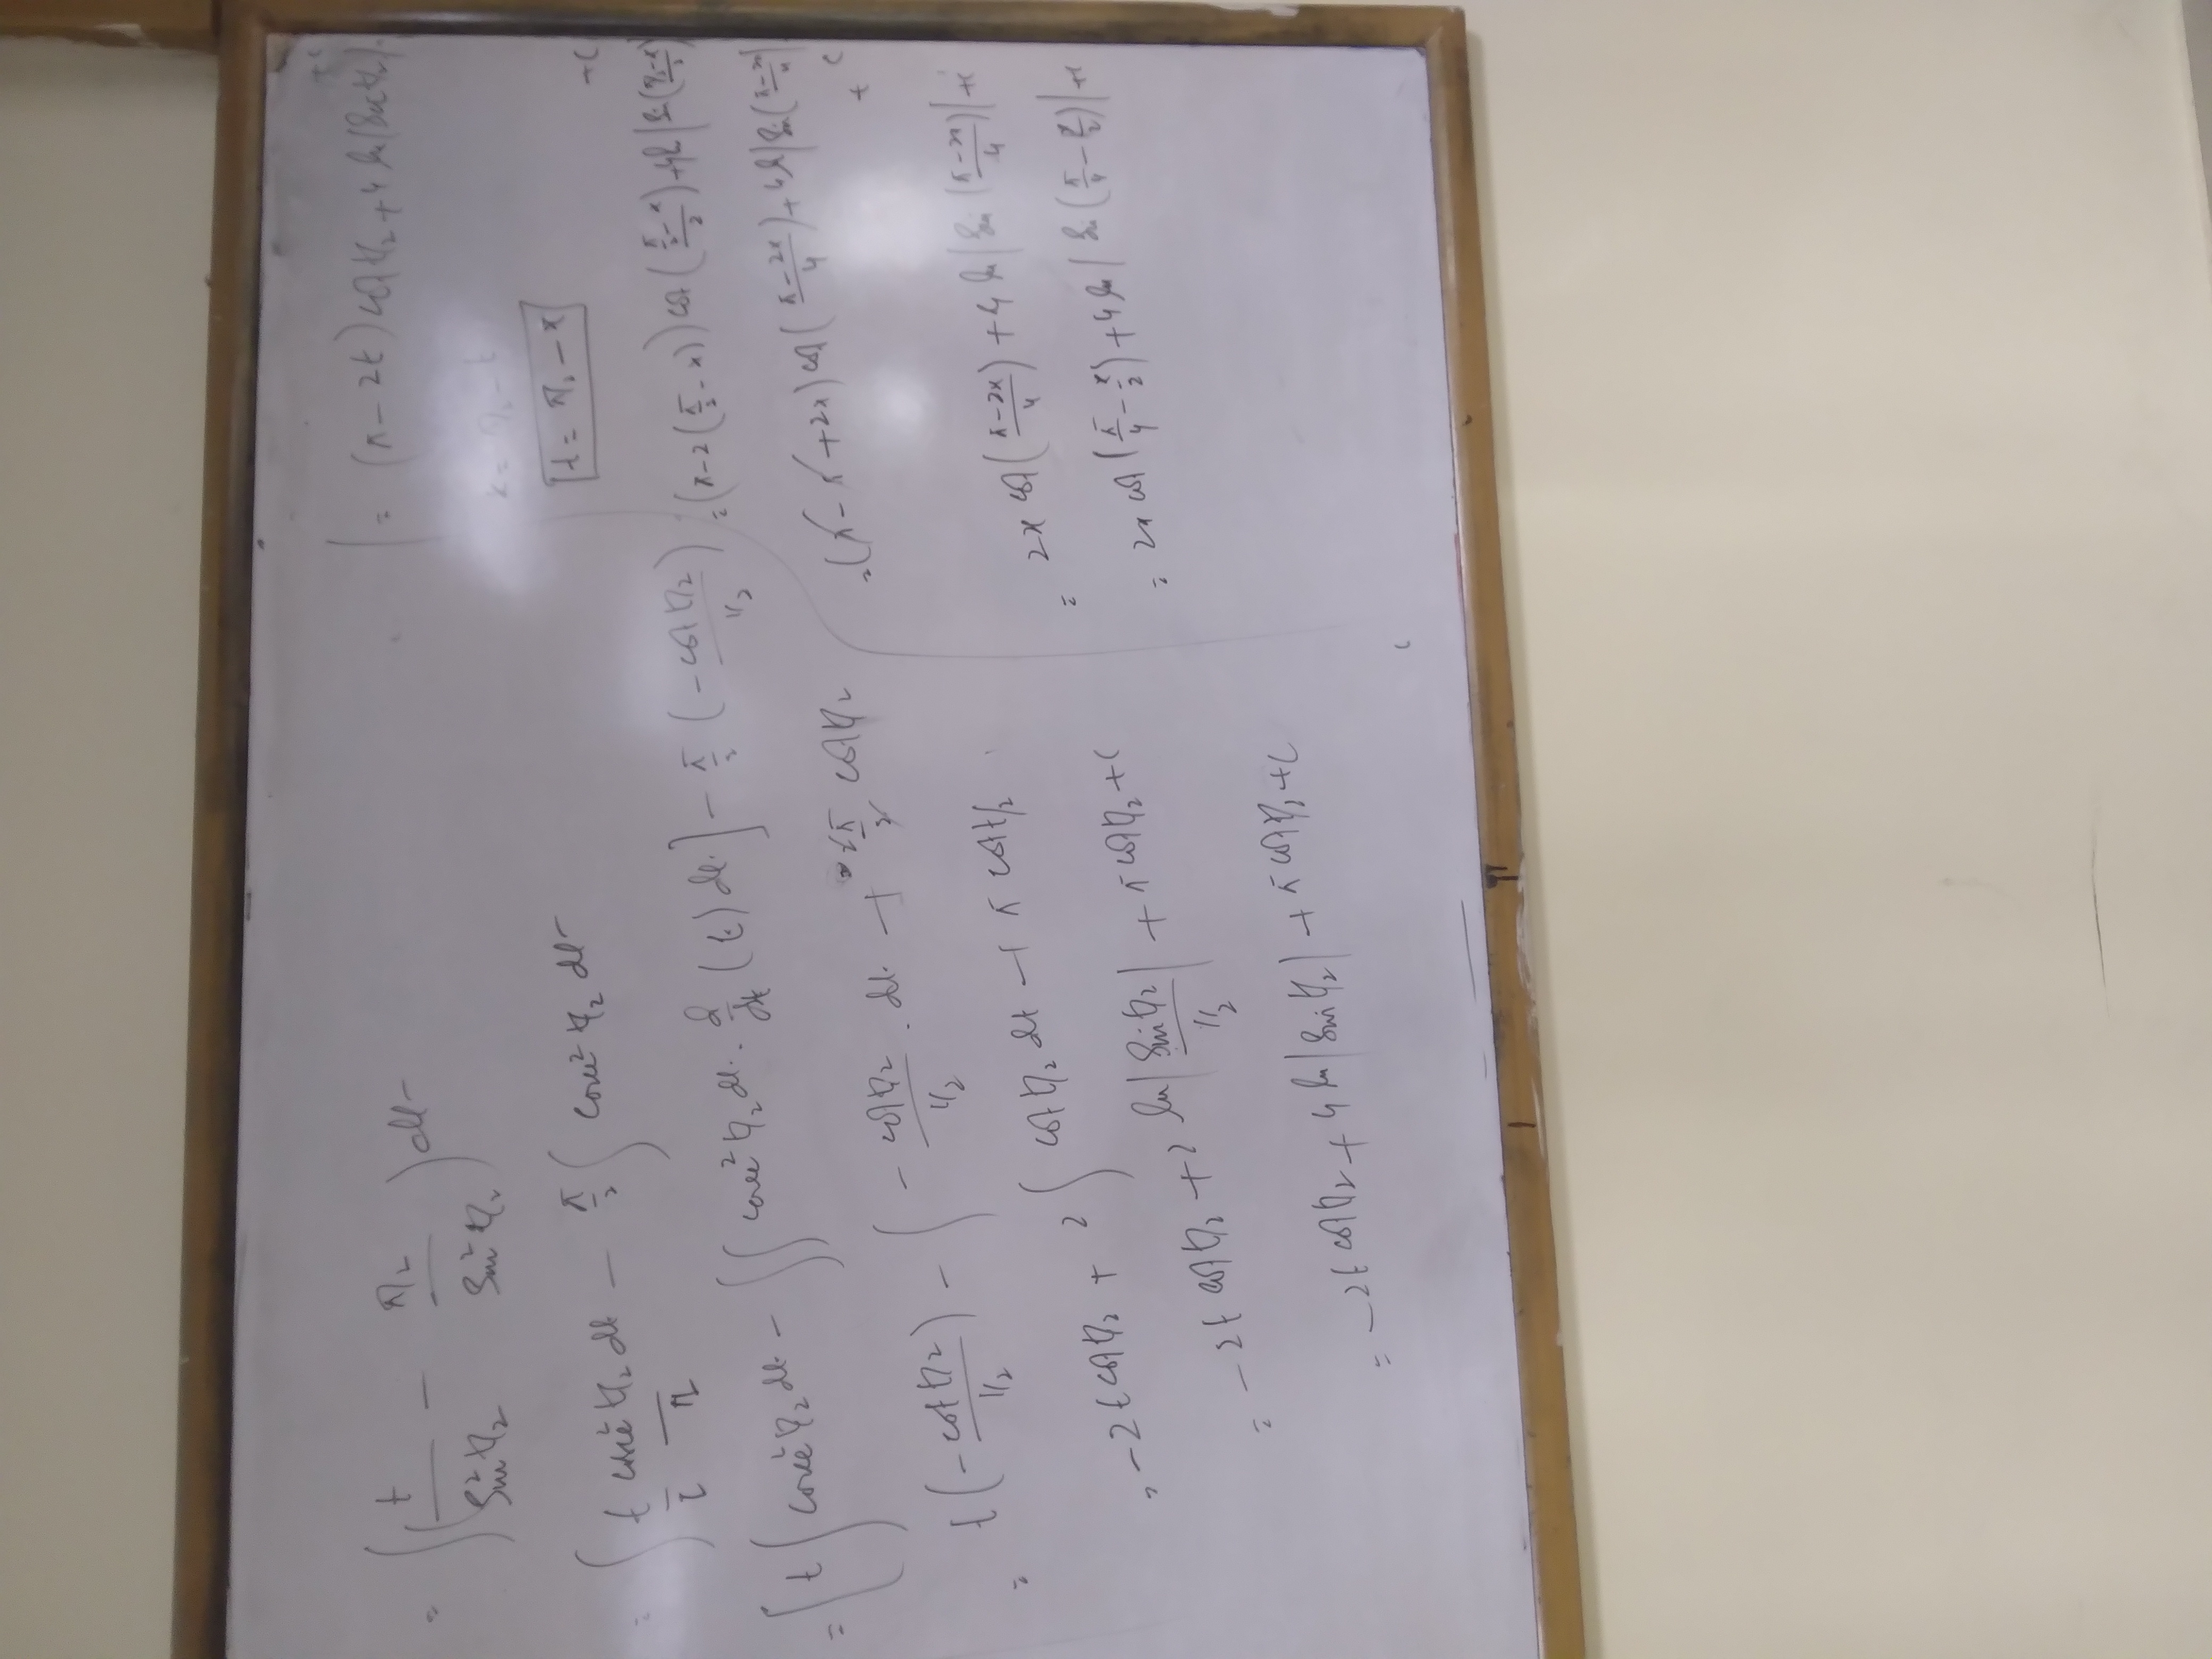 = ∫ ( t / sin² t/2 − π/2 / sin² t/2 ) dt
= ∫ t cosec² t/2 dt − π/2 ∫ cosec² t/2 dt
I II
= [ t ∫ cosec² t/2 dt − ∫∫ cosec² t/2 dt · d/dt (t) dt ] − π/2 ( − cot t/2 / 1/2 )
= t ( − cot t/2 / 1/2 ) − ∫ − cot t/2 / 1/2 · dt + 2π/2 cot t/2
= −2t cot t/2 + 2 ∫ cot t/2 dt + π cot t/2
= −2t cot t/2 + 2 ln | sin t/2 / 1/2 | + π cot t/2 + c
= −2t cot t/2 + 4 ln | sin t/2 | + π cot t/2 + c
= (π − 2t) cot t/2 + 4 ln | sin t/2 | + c
x = π/2 − t
t = π/2 − x
= (π − 2(π/2 − x)) cot ( (π/2 − x) / 2 ) + 4 ln | sin ( (π/2 − x) / 2 ) | + c
= (π − π + 2x) cot ( (π − 2x) / 4 ) + 4 ln | sin ( (π − 2x) / 4 ) | + c
= 2x cot ( (π − 2x) / 4 ) + 4 ln | sin ( (π − 2x) / 4 ) | + c
= 2x cot ( π/4 − x/2 ) + 4 ln | sin ( π/4 − x/2 ) | + c